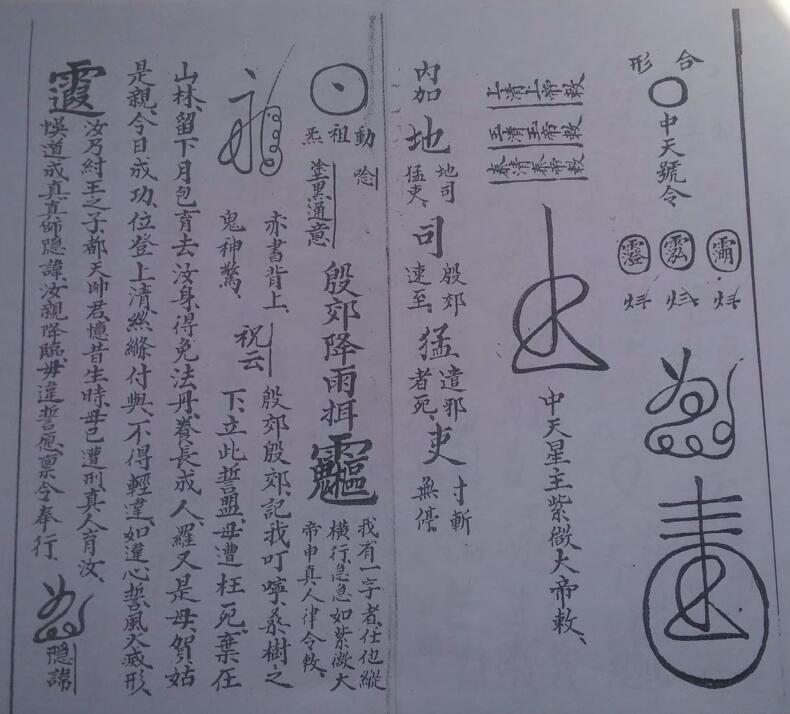 合形
中天號令
上清上帝敕
玉清玉帝敕
泰清泰帝敕
中天星主紫微大帝敕、
內加
地
地司猛吏、
司
殷郊速至、
猛
遣邪者死、
吏
寸斬無停、
動祖炁
唸
塗黑通意、
殷郊降雨揖
我有一字者、任他縱
橫行、急急如紫微大
帝申真人律令敕、
赤書背上、
鬼神驚、
祝云
殷郊殷郊、記我叮嚀、桑樹之
下、立此誓盟、母遭枉死、棄在
山林、留下月包、育去汝身、得免法丹、養長成人、羅又是母、賀姑
是親、今日成功、位登上清、絲縧付與、不得輕違、如違心誓、風火滅形、
汝乃紂王之子、都天帥君、憶昔生時、母已遭刑、真人育汝、
悞道成真、真師隱諱、汝親降臨、毋違誓愿、稟令奉行、
隱諱